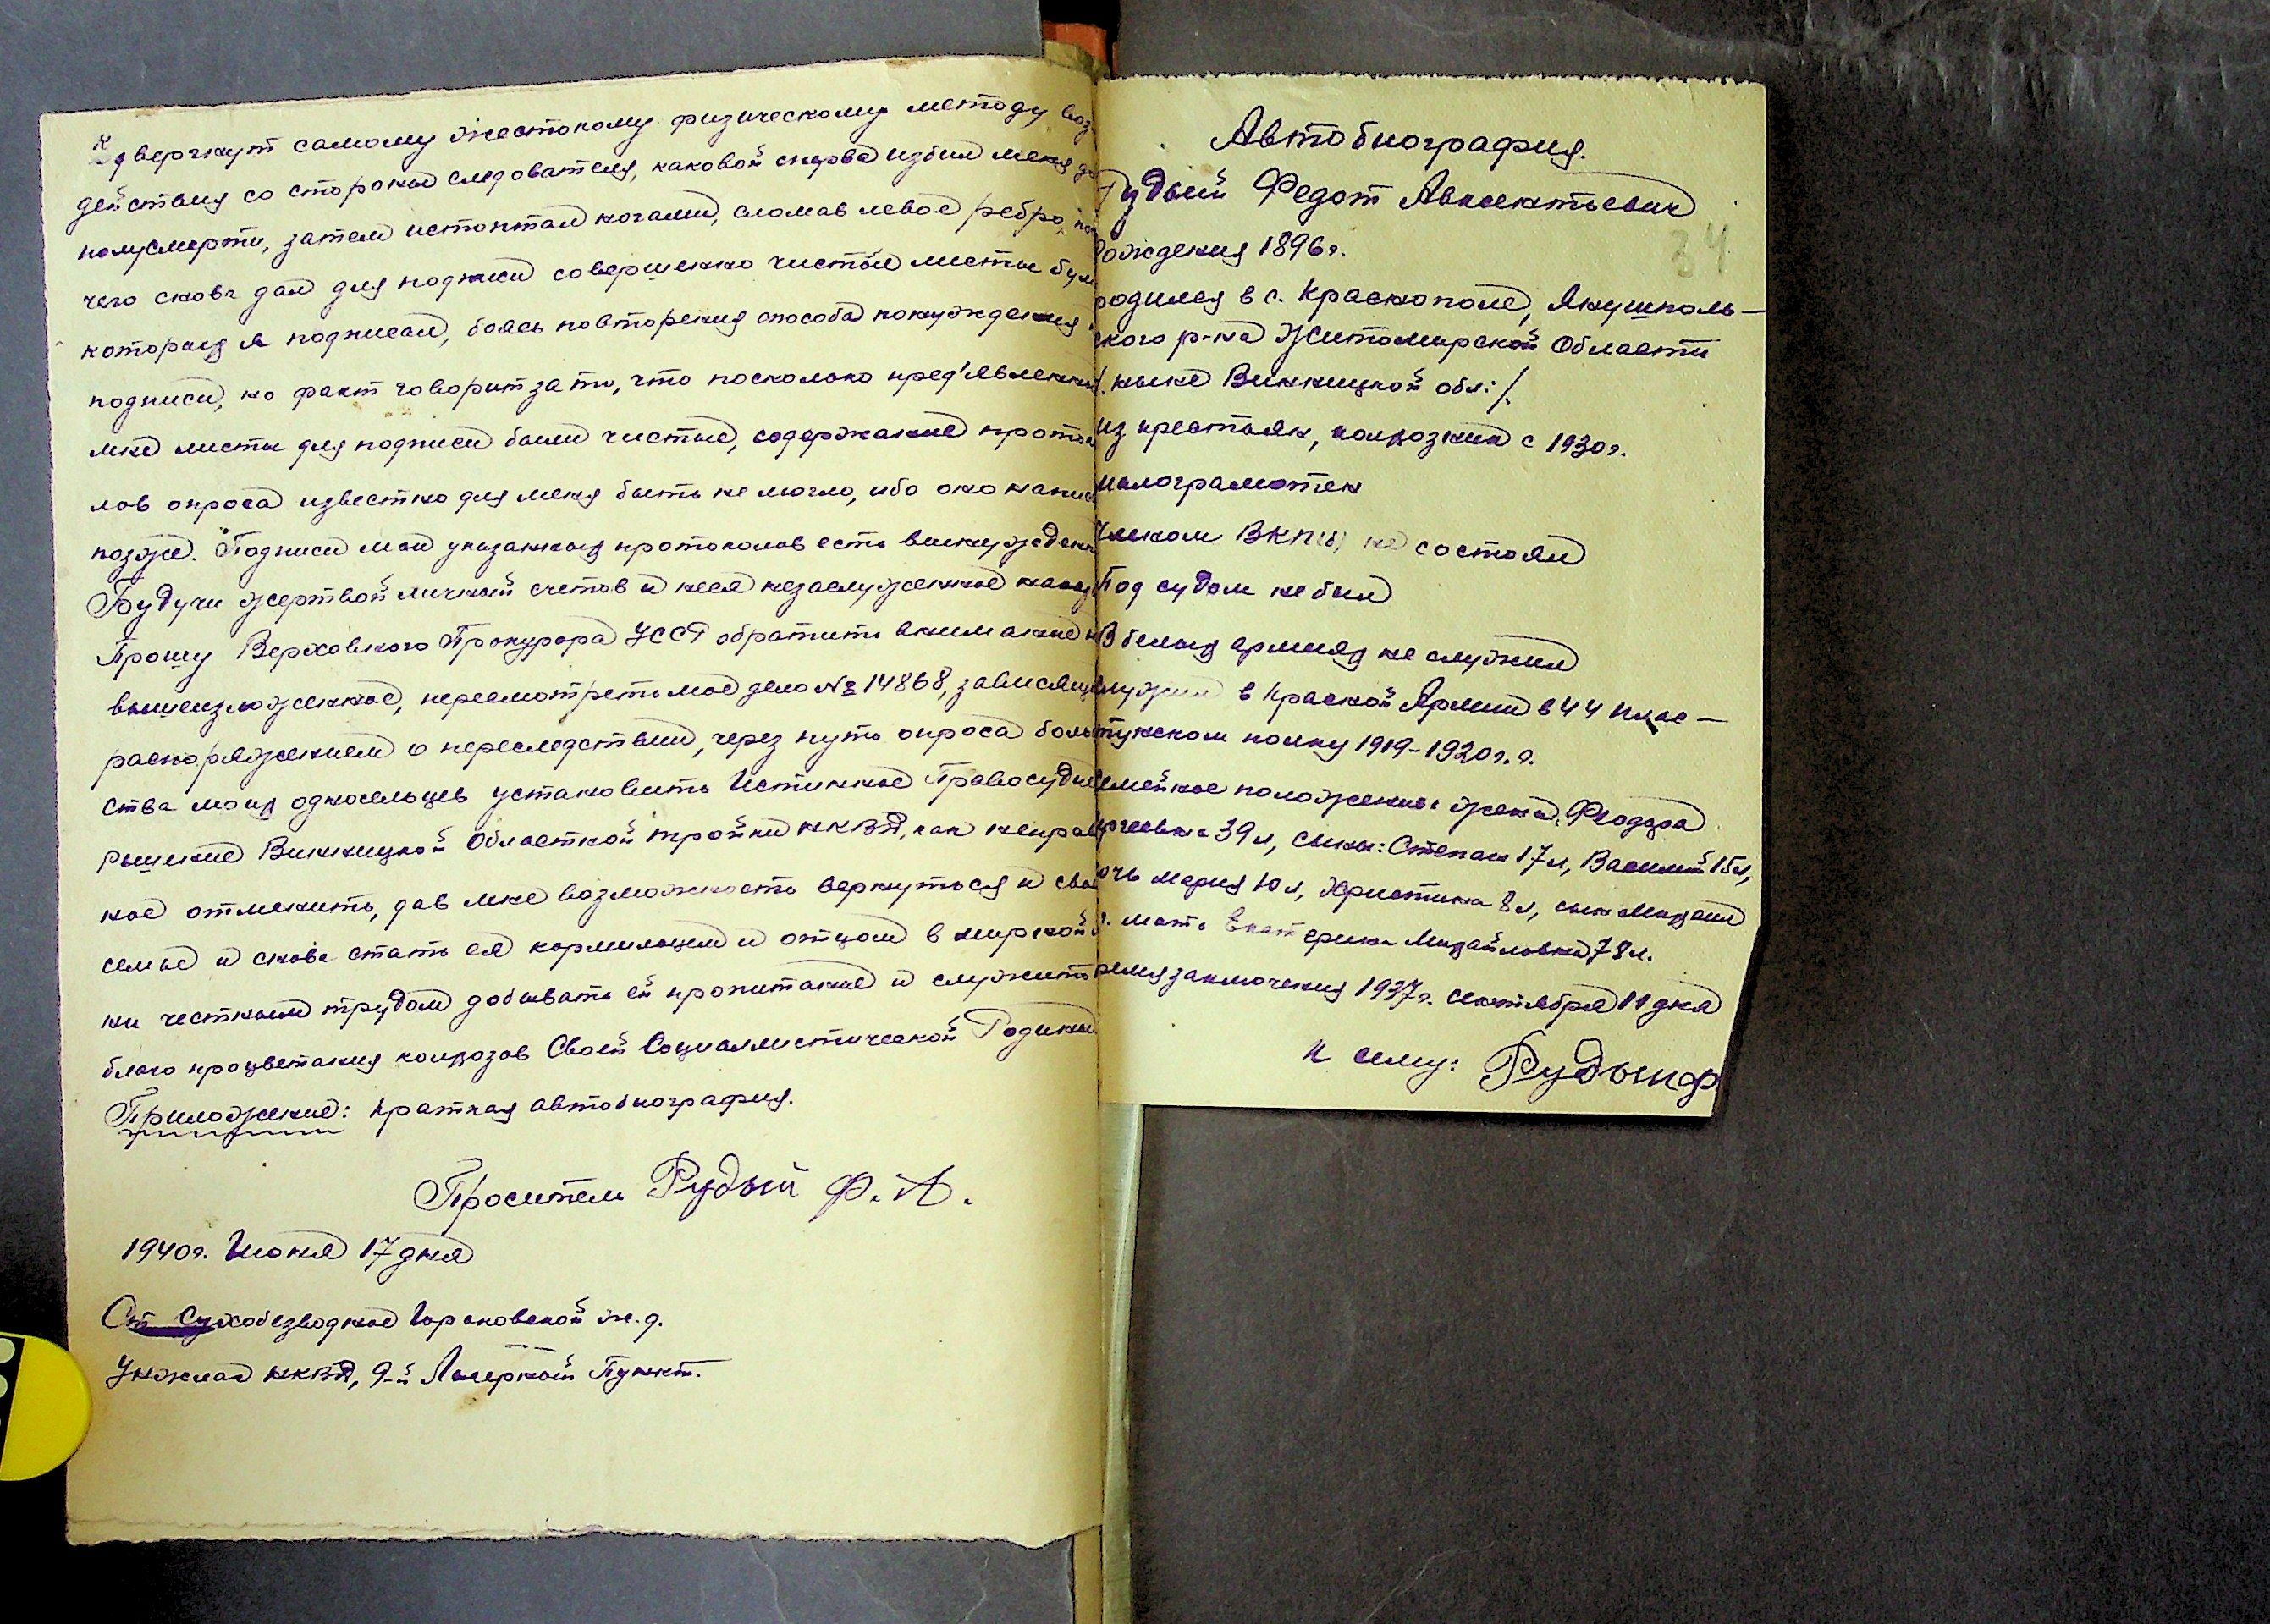 подвергнут самому жестокому физическому методу воз
действия со стороны следователя, каковой сперва избил меня до
полусмерти, затем истоптал ногами, сломав левое ребро, пос
чего снова дал для подписи совершенно чистые листы бум
которых я подписал, боясь повторения способа понуждения
подписи, но факт говорит за то, что поскольку пред'явленны
мне листы для подписи были чистые, содержание проток
лов опроса известно для меня быть не могло, ибо оно напис
позже. Подписи мои указанных протоколов есть вынужден
Будучи жертвой личный счетов и неся незаслуженное наказ
Прошу Верховного Прокурора УССР обратить внимание н
вышеизложенное, пересмотреть мое дело № 14868, зависящи
распоряжением о переследствии, через путь опроса боль
ства моих односельцев установить Истинное Правосудие
рышение Винницкой Областной тройки НКВД, как неправ
ное отменить, дав мне возможность вернуться и свой
семье и снова стать ея кормильцем и отцом в мирской
ни честным трудом добывать ей пропитание и служить
благо процветания колхозов Своей Социалистической Родины
Приложение: Краткая автобиография.
Проситель Рудый Ф. А.
1940г. Июня 17 дня
Ст Сухобезводное Горьковской ж.д.
Унжлаг НКВД, 9-й Лагерной Пункт.
Автобиография.
34
Рудый Федот Авксентьевич
Рождения 1896г.
родился в с. Краснополе, Якушполь-
ского р-на Житомирской Области
/. ныне Винницкой обл:/.
из крестьян, колхозник с 1930г.
малограмотен
Членом ВКП(б) не состоял
Под судом не был
В белых армиях не служил
служил в Красной Армии в 44 Плас-
тунском полку 1919-1920г.г.
емейное положение: жена, Феодора
ргеевна 39л, сыны: Степан 17л, Василий 15л,
очь Мария 10л, Христина 8л, сын Михаил
л. мать Екатерина Михайловна 78л.
ремя заключения 1937г. сентября 11 дня
К сему: РудыйФ